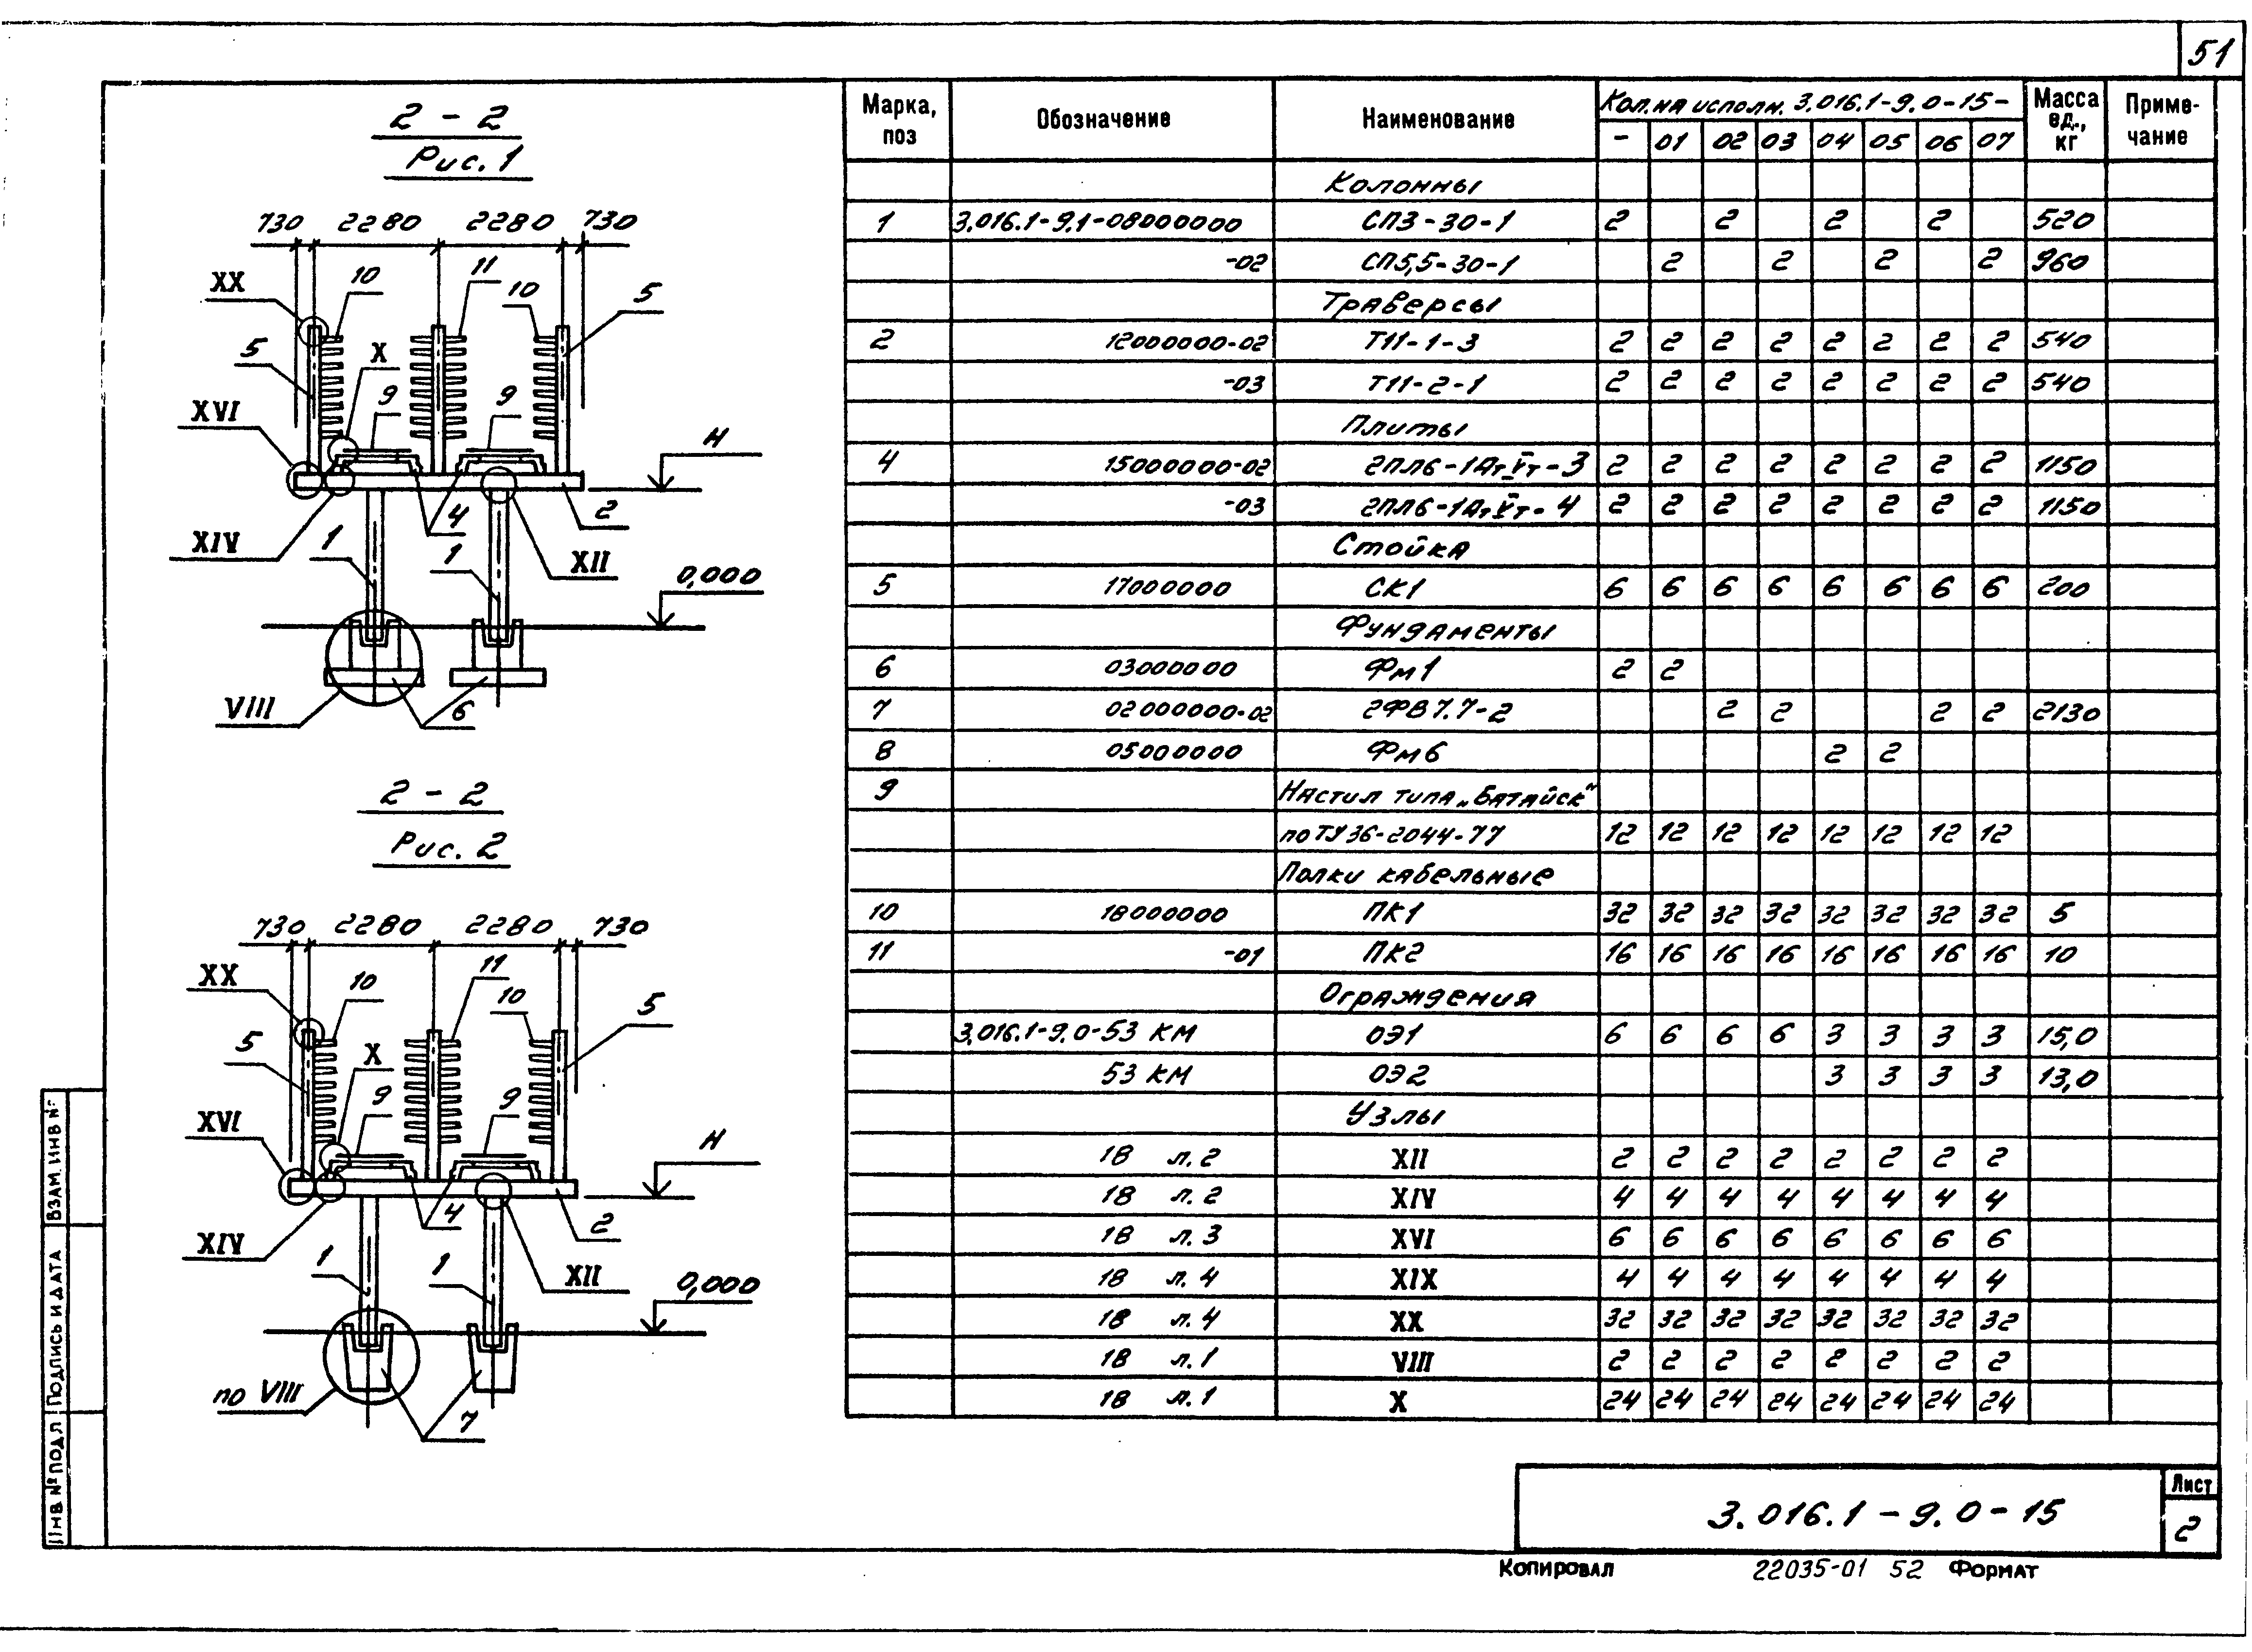 51
2 - 2
Рис. 1
730 2280 2280 730
XX 10 11 10 5
5 X
9 9
XVI
Н
4 2
XIV 1 1 XII
0,000
VIII 6
2 - 2
Рис. 2
730 2280 2280 730
XX 10 11 10 5
5 X
9 9
XVI
Н
4 2
XIV 1 1 XII
0,000
по VIII 7
Марка, поз Обозначение Наименование Кол. на исполн. 3.016.1-9.0-15- Масса ед., кг Приме-чание
- 01 02 03 04 05 06 07
Колонны
1 3.016.1-9.1-08000000 СП3-30-1 2 2 2 2 520
-02 СП5,5-30-1 2 2 2 2 960
Траверсы
2 12000000-02 Т11-1-3 2 2 2 2 2 2 2 2 540
-03 Т11-2-1 2 2 2 2 2 2 2 2 540
Плиты
4 15000000-02 2ПЛ6-1АтVт-3 2 2 2 2 2 2 2 2 1150
-03 2ПЛ6-1АтVт-4 2 2 2 2 2 2 2 2 1150
Стойка
5 17000000 СК1 6 6 6 6 6 6 6 6 200
Фундаменты
6 03000000 Фм1 2 2
7 02000000-02 2ФВ7.7-2 2 2 2 2 2130
8 05000000 Фм6 2 2
9 Настил типа „Батайск"
по ТУ 36-2044-77 12 12 12 12 12 12 12 12
Полки кабельные
10 18000000 ПК1 32 32 32 32 32 32 32 32 5
11 -01 ПК2 16 16 16 16 16 16 16 16 10
Ограждения
3.016.1-9.0-53 КМ ОЭ1 6 6 6 6 3 3 3 3 15,0
53 КМ ОЭ2 3 3 3 3 13,0
Узлы
18 л.2 XII 2 2 2 2 2 2 2 2
18 л.2 XIV 4 4 4 4 4 4 4 4
18 л.3 XVI 6 6 6 6 6 6 6 6
18 л.4 XIX 4 4 4 4 4 4 4 4
18 л.4 XX 32 32 32 32 32 32 32 32
18 л.1 VIII 2 2 2 2 2 2 2 2
18 л.1 X 24 24 24 24 24 24 24 24
ИНВ № ПОДЛ ПОДПИСЬ И ДАТА ВЗАМ. ИНВ №
3.016.1-9.0-15
Лист
2
Копировал 22035-01 52 Формат